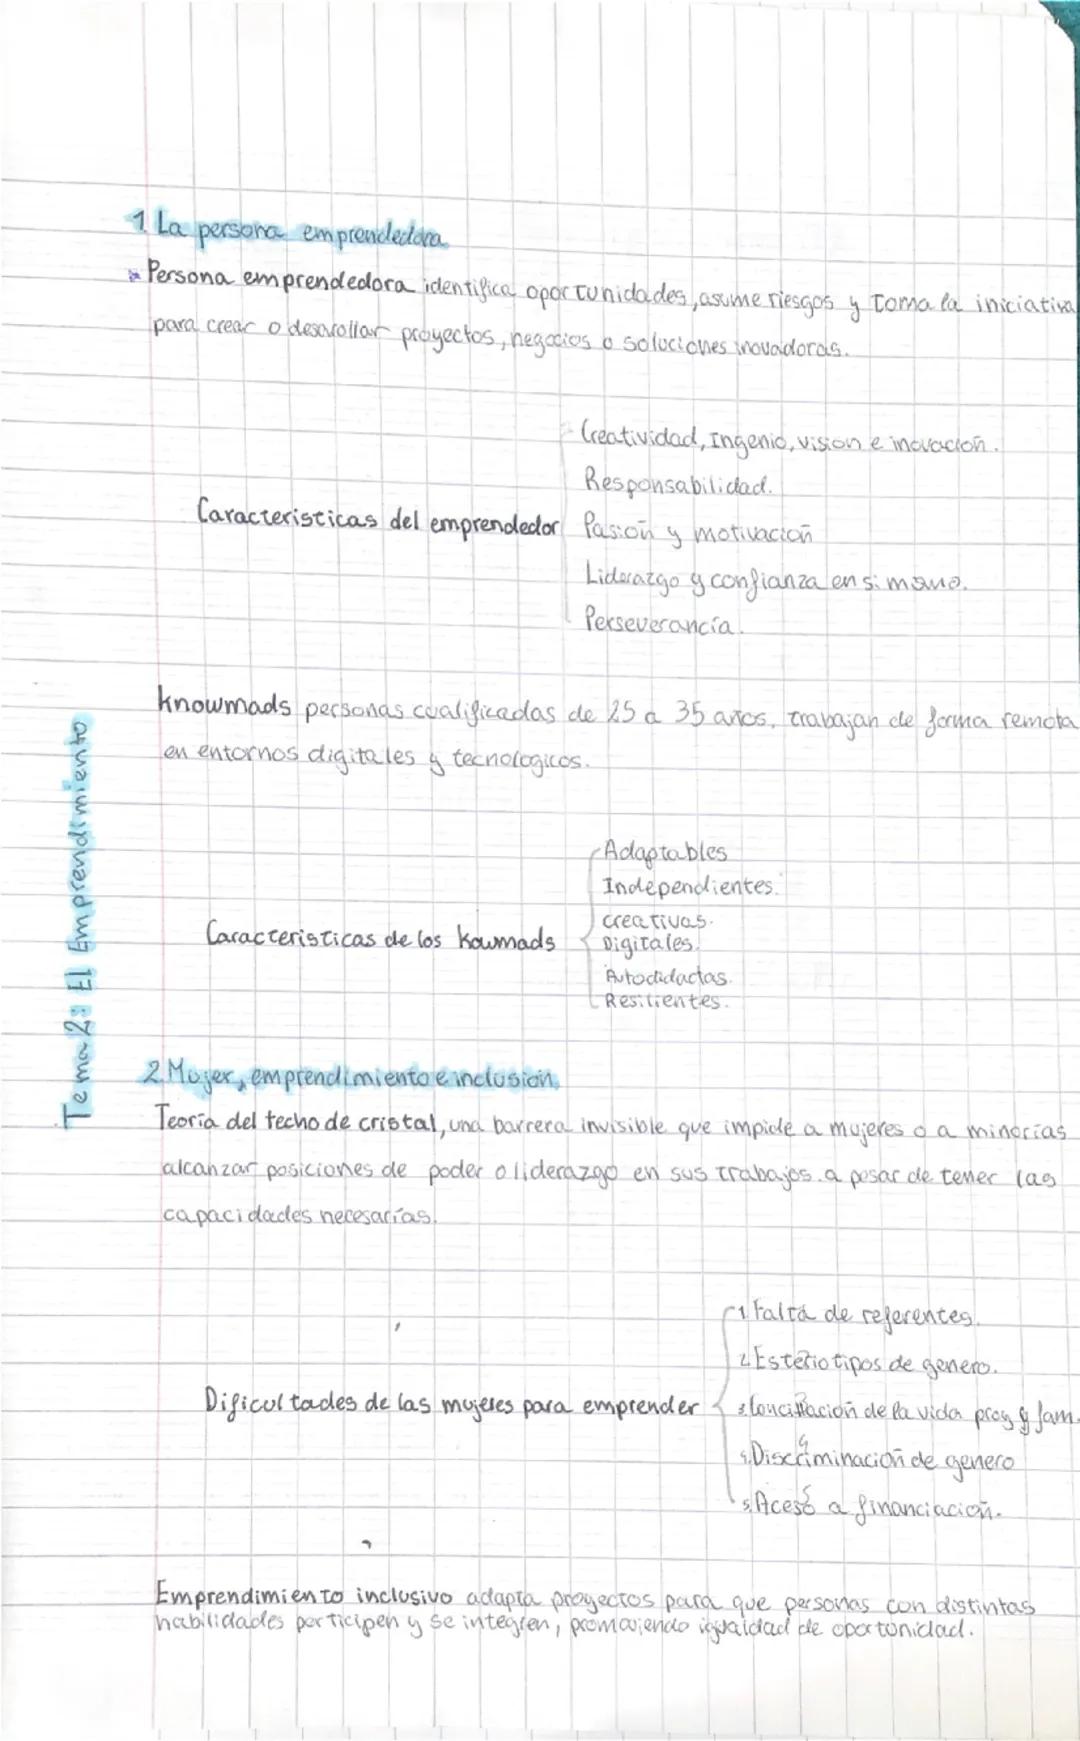 Tema 2: El Emprendimiento
1. La persona emprendedora
Persona emprendedora identifica oportunidades, asume riesgos y toma la iniciativa
para crear o desarollar proyectos, negocios o soluciones inovadoras.
Creatividad, Ingenio, vision e inovación.
Responsabilidad.
Caracteristicas del emprendedor
Pasión y motivación
Liderazgo y confianza en si mismo.
Perseverancía.
knowmads personas cualificadas de 25 a 35 años, trabajan de forma remota
en entornos digitales y tecnologicos.
Adaptables
Independientes.
creativas.
Caracteristicas de los kowmads
Digitales.
Autodidactas.
Resilientes.
2. Mujer, emprendimiento e inclusión.
Teoría del techo de cristal, una barrera invisible que impide a mujeres o a minorías
alcanzar posiciones de poder o liderazgo en sus trabajos a pesar de tener las
capacidades necesarías.
1. Falta de referentes.
2. Esteriotipos de genero.
Dificultades de las mujeres para emprender
3. Conciliación de la vida prog y fam.
4. Discriminación de genero
5. Aceso a financiación.
Emprendimiento inclusivo adapta proyectos para que personas con distintas
habilidades participen y se integren, promoviendo igualdad de oportunidad.